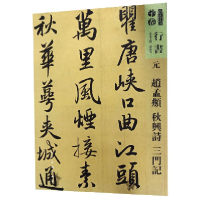 瞿唐峽口曲江頭
萬里風煙接素
秋華萼夾城通
行書
元
趙孟頫
秋興詩
三門記